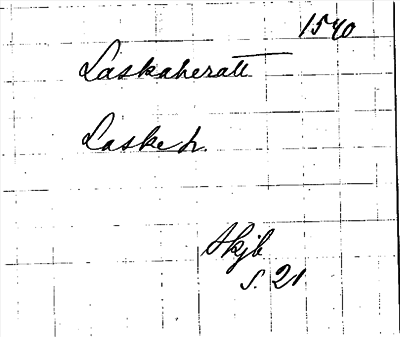 1540
Laskaheratt
Laske h.
Skjb
s. 21